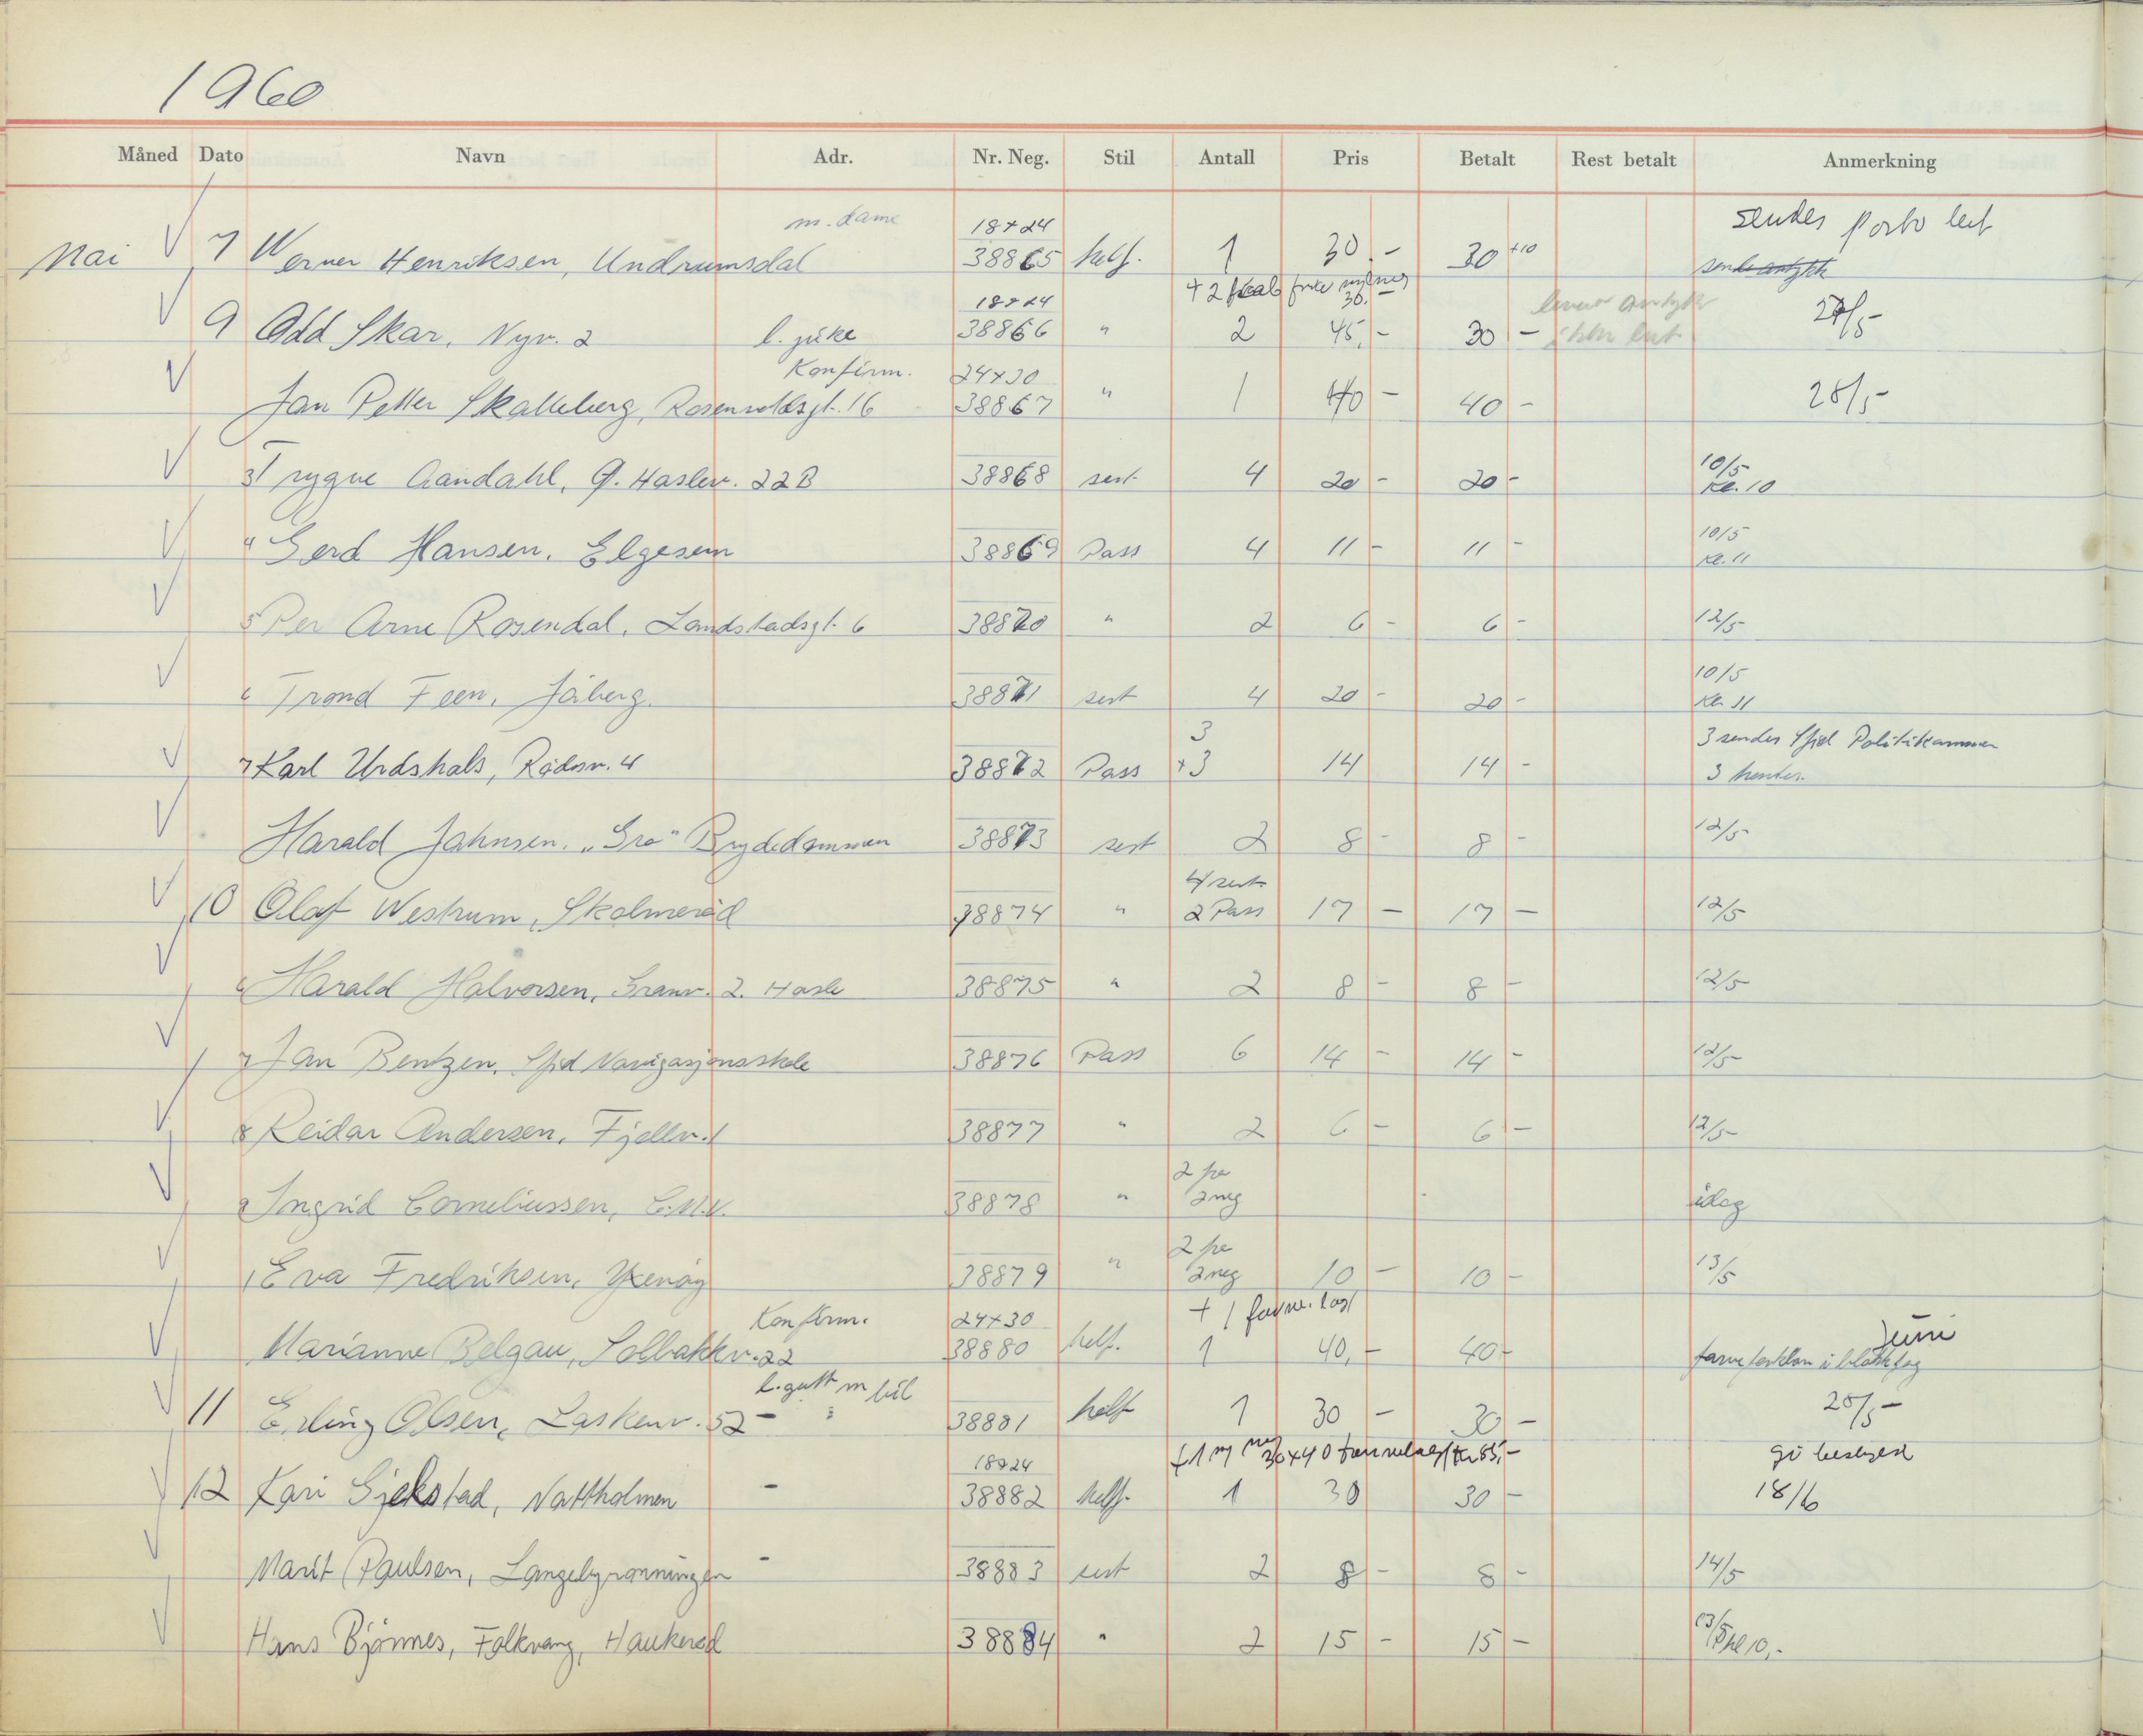 1960
Måned Dato Navn Adr. Nr. Neg. Stil Antall Pris Betalt Rest betalt Anmerkning
m. dame 18x24 sendes porto
Mai 7 Werner Henriksen, Undrumsdal 38865 helf. 1 30.- 30 +10
+ 2
18x24 30.-
9 Odd Skar, Nyv. 2 l. pike 38866 " 2 45,- 30 - 27/5-
Konfirm. 24x30
Jan Petter Skalleberg, Rosenvoldsgt. 16 38867 " 1 40 - 40 - 28/5-
10/5
3 Trygve Aandahl, G. Haslev. 22B 38868 sert. 4 20 - 20 - Kl. 10
10/5
4 Gerd Hansen, Elgesem 38869 Pass 4 11 - 11 - Kl. 11
5 Per Arne Rosendal, Landstadsgt. 6 38870 " 2 6 - 6 - 12/5-
10/5
6 Trond Feen, Jåberg. 38871 sert 4 20 - 20 - Kl. 11
3 3 sendes Sfjd Politikammer
7 Karl Urdshals, Rådsv. 4 38872 Pass +3 14 14 - 3 hentes.
Harald Jahnsen, "Gro" Brydedammen 38873 sert 2 8 - 8 - 12/5-
4 sert.
10 Olaf Westrum, Skolmerød 38874 " 2 Pass 17 - 17 - 12/5
6 Harald Halvorsen, Granv. 2. Hasle 38875 " 2 8 - 8 - 12/5-
7 Jan Bentzen, Sfjd Navigasjonsskole 38876 Pass 6 14 - 14 - 12/5-
8 Reidar Andersen, Fjellv. 1 38877 " 2 6 - 6 - 12/5-
2 pa
9 Ingrid Corneliussen, C.M.V. 38878 " 2 neg idag
2 pa
1 Eva Fredriksen, Yxenøy 38879 " 2 neg 10 - 10 - 13/5
Konfirm. 24x30 + 1 Juni
Marianne Belgau, Solbakkv. 22 38880 helf. 1 40,- 40-
l. gutt m bil
11 Erling Olsen, Laskenv. 52 - 38881 helf 1 30 - 30 - 28/5-
18x24 + 1 ny neg 30x40 gi beskjed
12 Kari Gjekstad, Nattholmen - 38882 helf. 1 30 30 - 18/6
Marit Paulsen, Langebyrønningen - 38883 sert 2 8 - 8 - 14/5
Hans Bjønnes, Folkvang, Haukerød 38884 " 2 15 - 15 - 13/5 kl 10,-